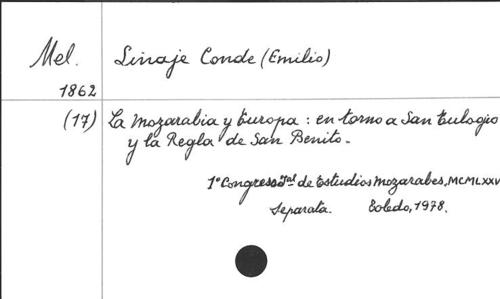 Mel. Linaje Conde (Emilio)
1862
(17) La Mozarabia y Europa : en torno a San Eulogio
y la Regla de San Benito.
1º Congreso Jal de Estudios Mozarabes, MCMLXXV
Separata. Toledo, 1978.